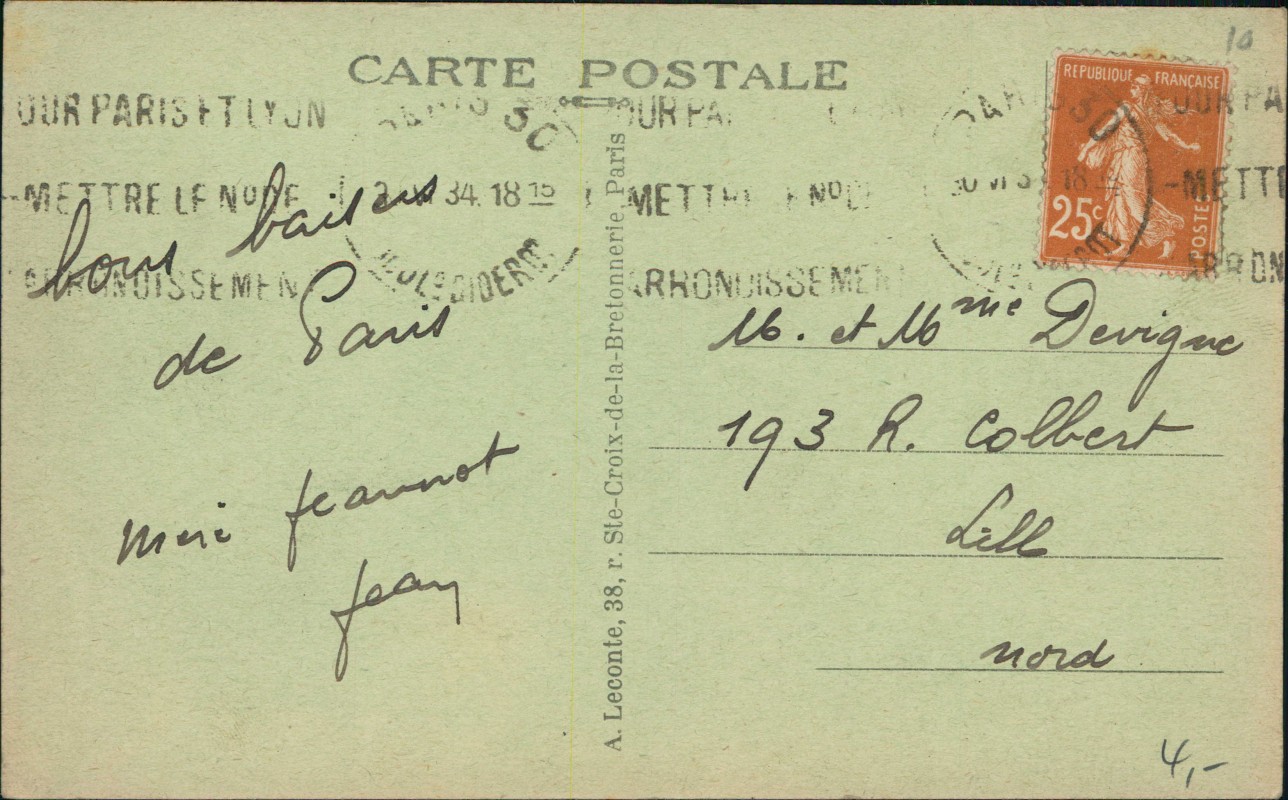 CARTE POSTALE
10
REPUBLIQUE FRANÇAISE
25c
POSTES
OUR PARIS ET LYON
PARIS 30
OUR PA
OUR PA
-METTRE LE No DE
34. 18 15
METTRE LE No DE
VI 3 18
-METTRE
ARRONDISSEMEN
Bould DIDEROT
ARRONDISSEMENT
ARRON
bons baisers
de Paris
jeannot
jean
M. et Mme Devigne
193 R. Colbert
Lill
nord
A. Leconte, 38, r. Ste-Croix-de-la-Bretonnerie Paris
4,-